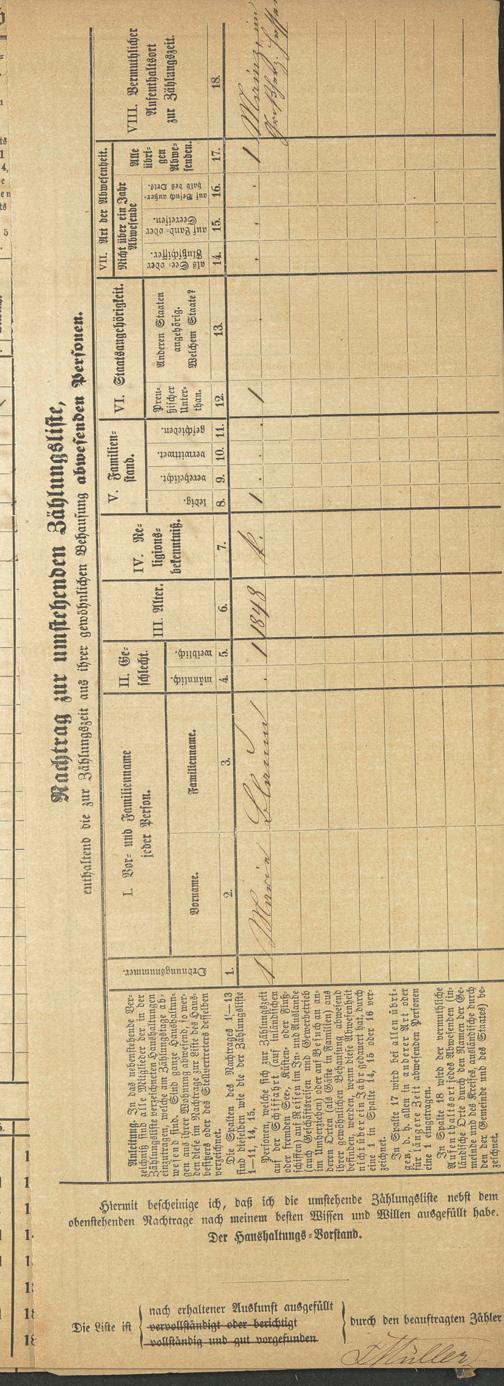 Nachtrag zur umstehenden Zählungsliste,
enthaltend die zur Zählungszeit aus ihrer gewöhnlichen Behausung abwesenden Personen.
Anleitung. In das nebenstehende Verzeichniß sind alle Mitglieder der in der Zählungsliste verzeichneten Haushaltungen einzutragen, welche am Zählungstage abwesend sind. Sind ganze Haushaltungen aus ihrer Wohnung abwesend, so werden diese im Nachtrage zur Liste des Hausbesitzers oder des Stellvertreters desselben verzeichnet.
Die Spalten des Nachtrages 1—13 sind dieselben wie die der Zählungsliste 1—11, 14, 15.
Personen, welche sich zur Zählungszeit auf der Schifffahrt (auf inländischen oder fremden See-, Küsten- oder Flußschiffen) auf Reisen im In- und Auslande (auch Geschäftsreisen und Gewerbebetrieb im Umherziehen) oder auf Besuch an anderen Orten (als Gäste in Familien) aus ihrer gewöhnlichen Behausung abwesend befinden, werden, wenn diese Abwesenheit nicht über ein Jahr gedauert hat, durch eine 1 in Spalte 14, 15 oder 16 verzeichnet.
In Spalte 17 wird bei allen übrigen, d. h. allen in anderer Art oder für längere Zeit abwesenden Personen eine 1 eingetragen.
In Spalte 18 wird der vermuthliche Aufenthaltsort des Abwesenden (inländische Orte durch den Namen der Gemeinde und des Kreises, ausländische durch den der Gemeinde und des Staates) bezeichnet.
Ordnungsnummer.
I. Vor- und Familienname jeder Person.
Vorname.
Familienname.
II. Geschlecht.
männlich.
weiblich.
III. Alter.
IV. Religionsbekenntniß.
V. Familienstand.
ledig.
verehelicht.
verwittwet.
geschieden.
VI. Staatsangehörigkeit.
Preußischer Unterthan.
Anderen Staaten angehörig. Welchem Staate?
VII. Art der Abwesenheit.
Nicht über ein Jahr Abwesende
als See- oder Flußschiffer.
auf Land- oder Seereisen.
auf Besuch außerhalb des Orts.
Alle übrigen Abwesenden.
VIII. Vermuthlicher Aufenthaltsort zur Zählungszeit.
1. 2. 3. 4. 5. 6. 7. 8. 9. 10. 11. 12. 13. 14. 15. 16. 17. 18.
1 Maria 1 1848 k. 1 1 1 Mainz im
Hiermit bescheinige ich, daß ich die umstehende Zählungsliste nebst dem
obenstehenden Nachtrage nach meinem besten Wissen und Willen ausgefüllt habe.
Der Haushaltungs-Vorstand.
Die Liste ist
nach erhaltener Auskunft ausgefüllt
vervollständigt oder berichtigt
vollständig und gut vorgefunden.
durch den beauftragten Zähler
Müller